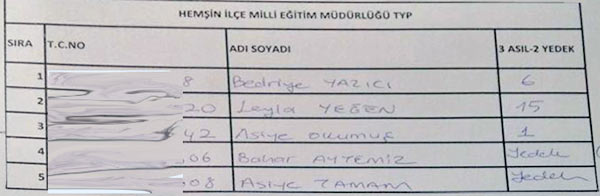 HEMŞİN İLÇE MİLLİ EĞİTİM MÜDÜRLÜĞÜ TYP
SIRA T.C.NO ADI SOYADI 3 ASIL-2 YEDEK
1 8 Bedriye YAZICI 6
2 20 Leyla YEĞEN 15
3 42 Asiye okumuş 1
4 06 Bahar AYTEMİZ Yedek
5 08 Asiye TAMAM Yedek